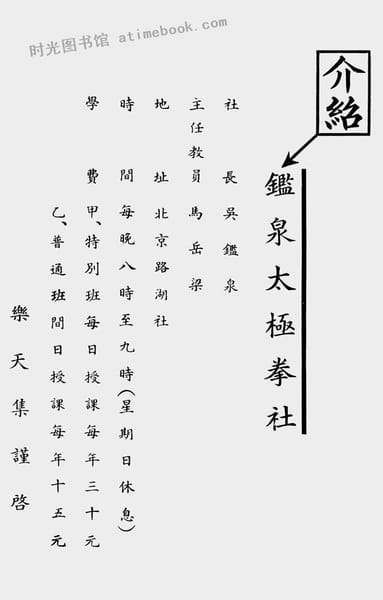 时光图书馆 atimebook.com
介紹
鑑泉太極拳社
社 長 吳鑑泉
主任教員 馬岳梁
地 址 北京路湖社
時 間 每晚八時至九時(星期日休息)
學 費 甲、特別班每日授課每年三十元
乙、普通班間日授課每年十五元
樂天集謹啓